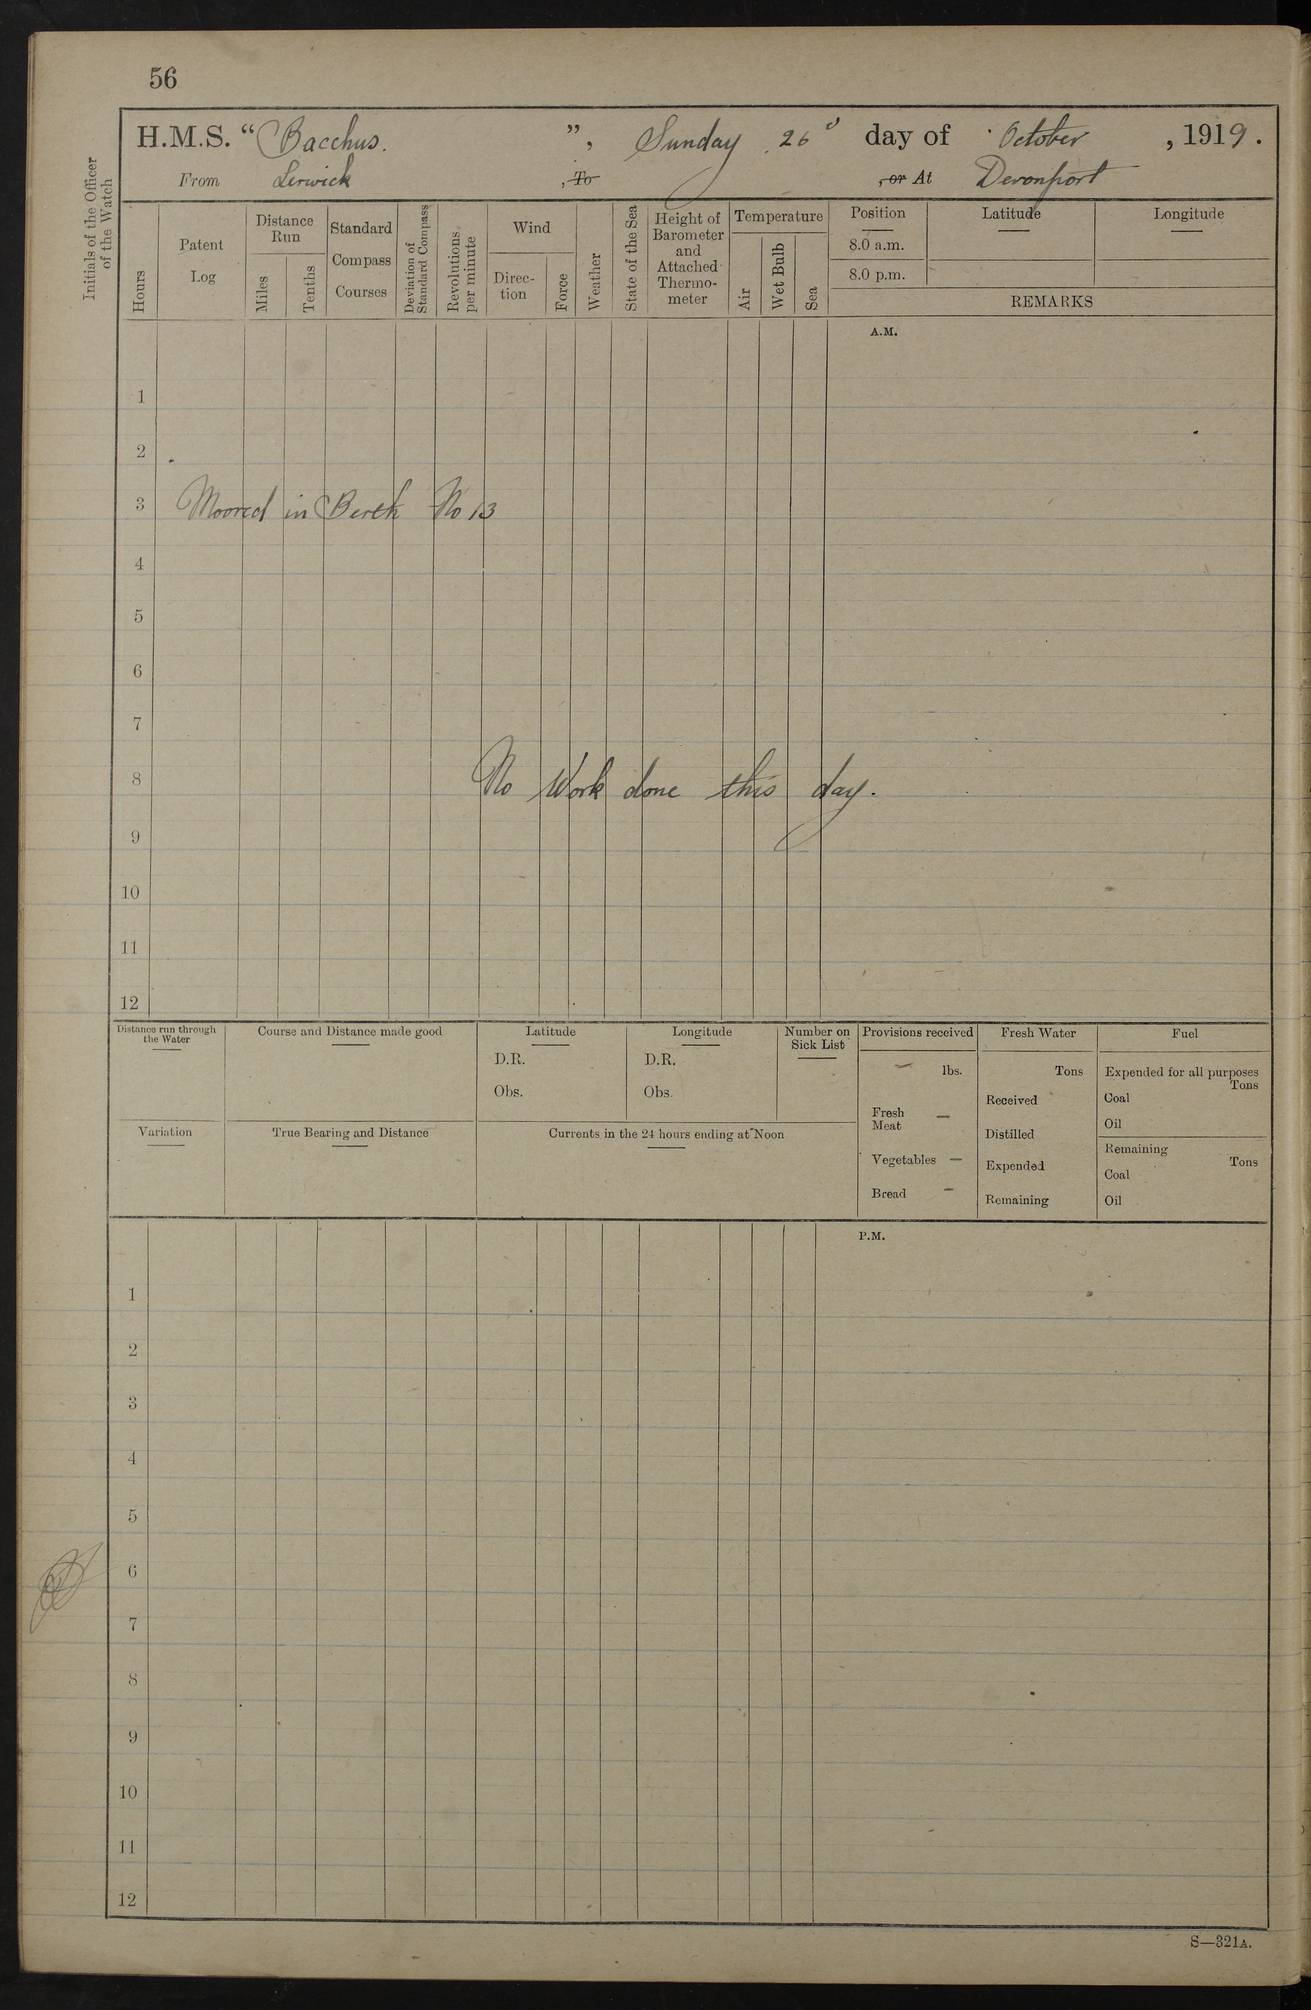 56
H.M.S. “Bacchus.”, Sunday 26 day of October, 1919.
From Lerwick, To , or At Devonport
Initials of the Officer of the Watch
Hours
Patent Log
Distance Run
Miles
Tenths
Standard Compass Courses
Deviation of Standard Compass
Revolutions per minute
Wind
Direc-tion
Force
Weather
State of the Sea
Height of Barometer and Attached Thermo-meter
Temperature
Air
Wet Bulb
Sea
Position
8.0 a.m.
8.0 p.m.
Latitude
Longitude
REMARKS
A.M.
1
2
3 Moored in Berth No 13
4
5
6
7
8 No Work done this day.
9
10
11
12
Distance run through the Water
Course and Distance made good
Latitude
D.R.
Obs.
Longitude
D.R.
Obs.
Number on Sick List
Provisions received
— lbs.
Fresh Meat —
Vegetables —
Bread —
Fresh Water
Tons
Received
Distilled
Expended
Remaining
Fuel
Expended for all purposes
Tons
Coal
Oil
Remaining
Tons
Coal
Oil
Variation
True Bearing and Distance
Currents in the 24 hours ending at Noon
P.M.
1
2
3
4
5
6
7
8
9
10
11
12
S—321A.